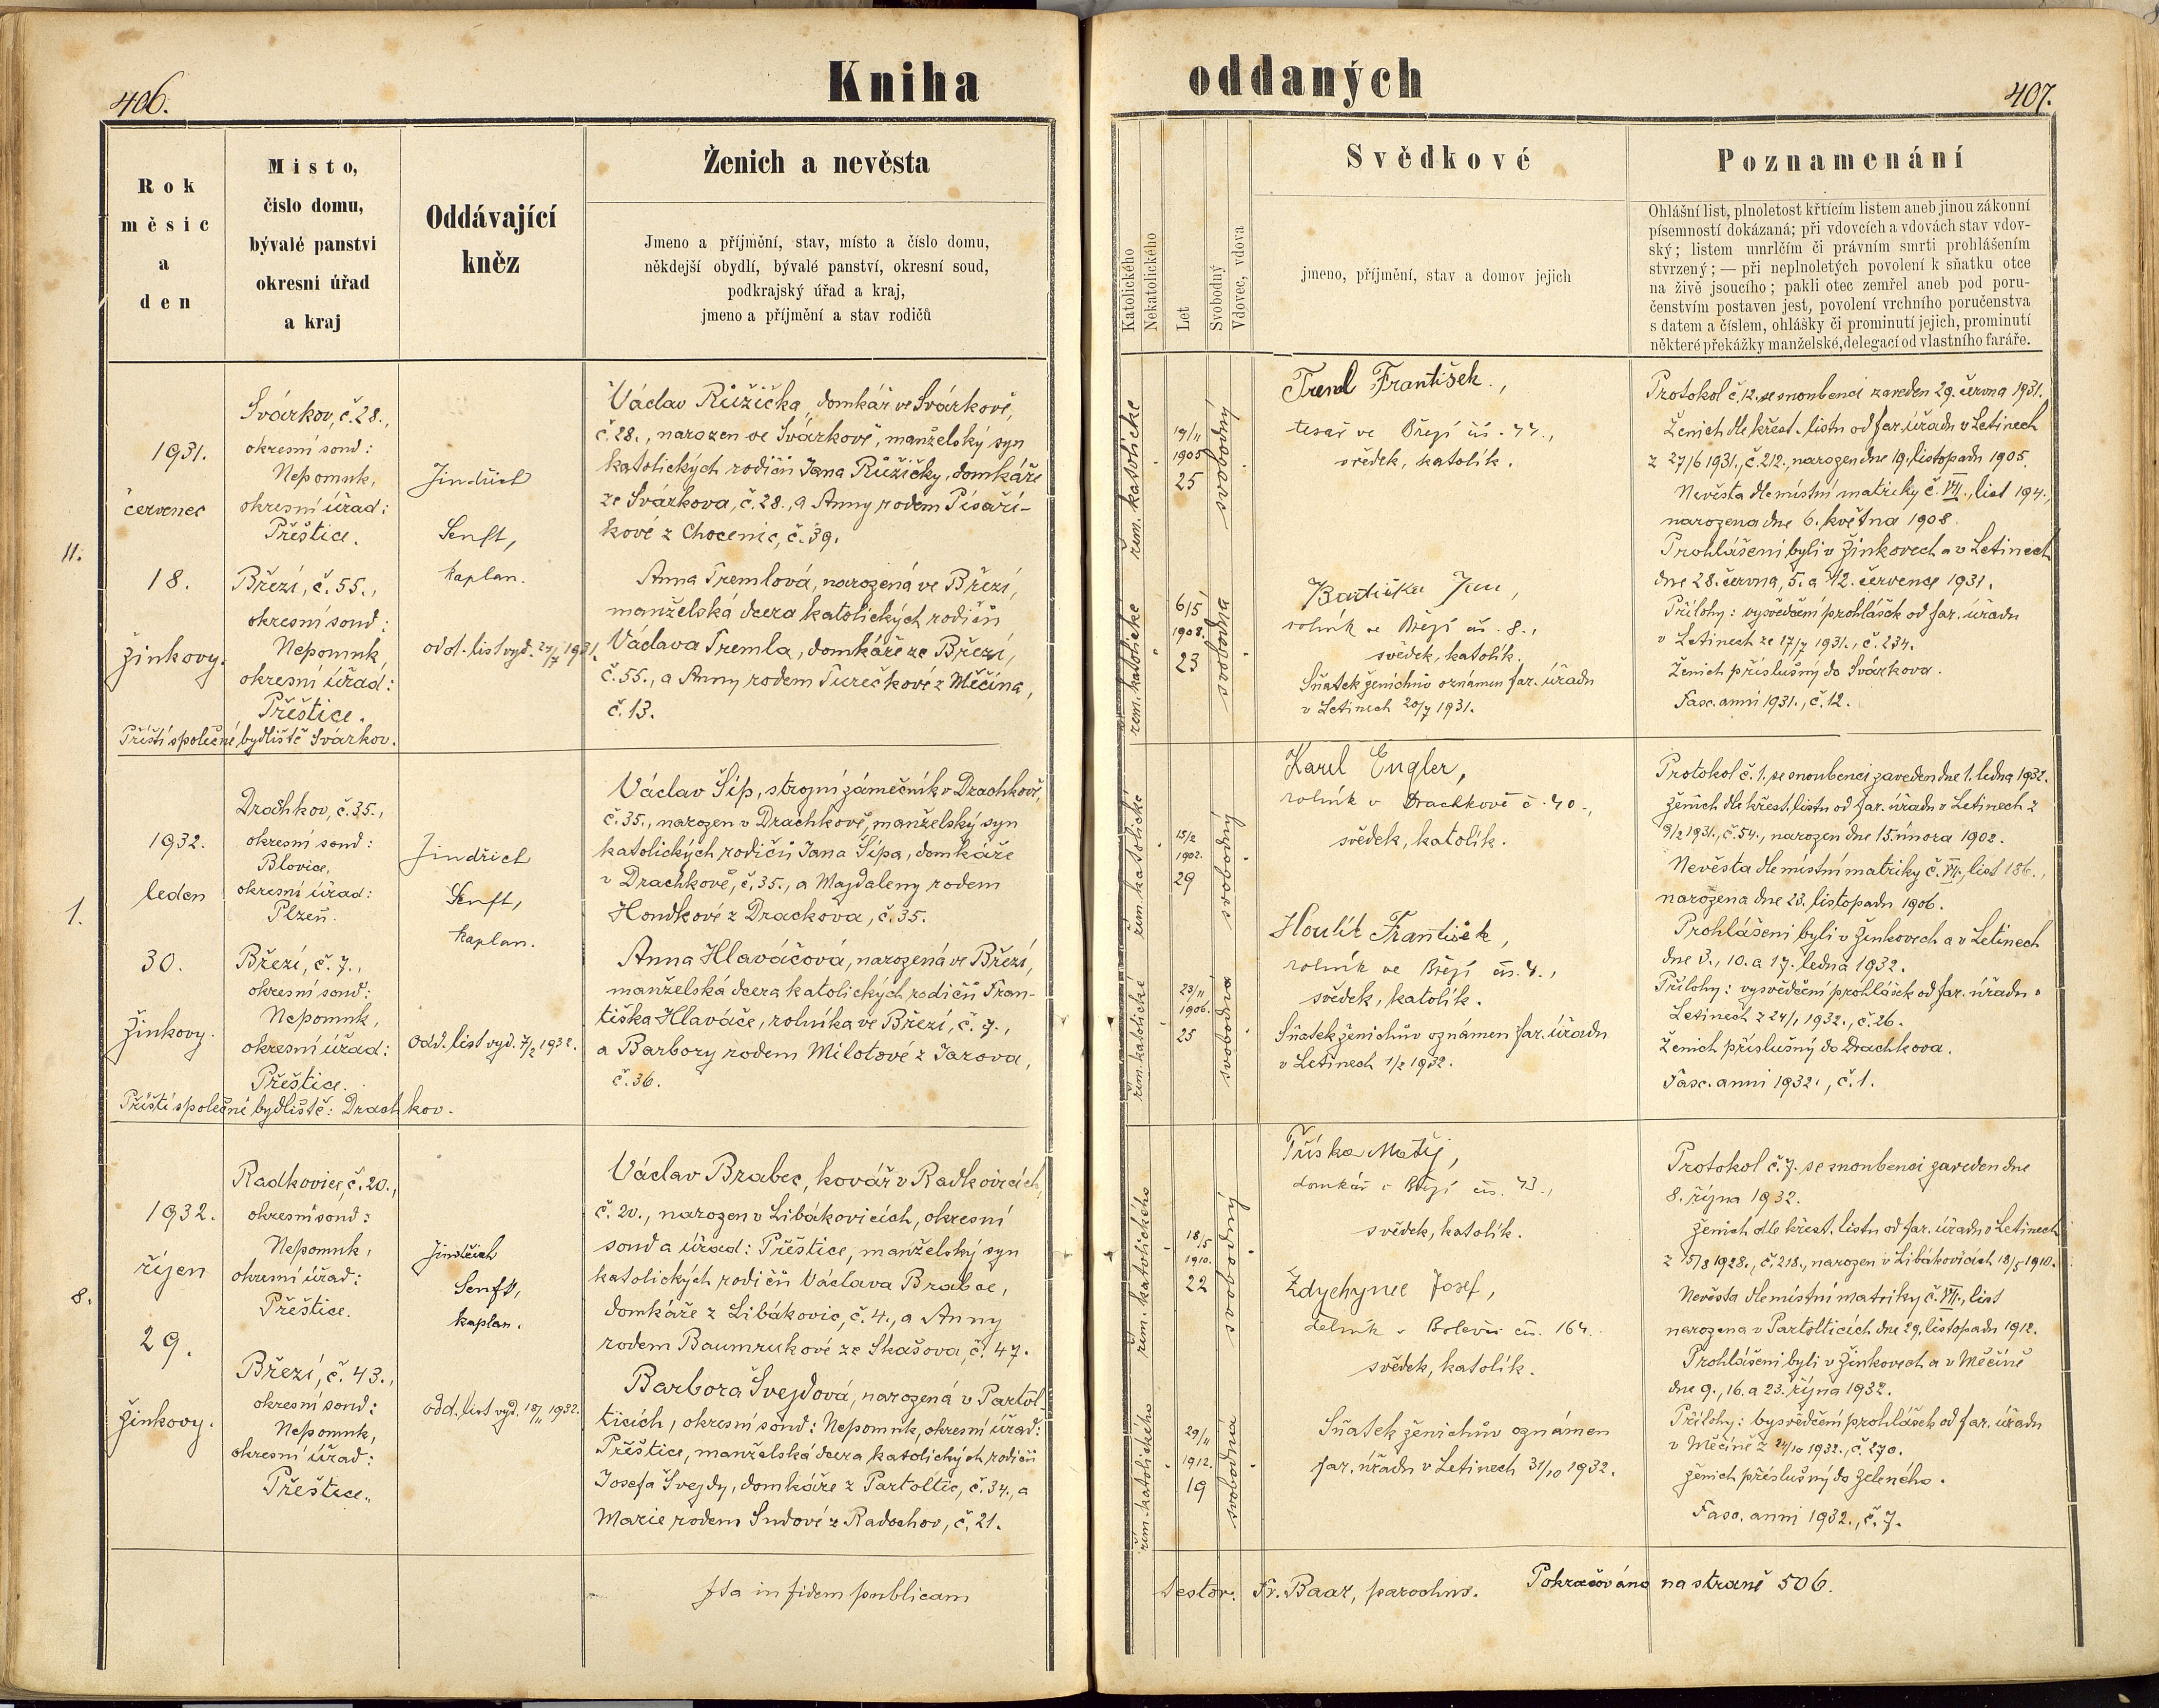 406.
Kniha
Rok
měsíc
a
den
Místo,
číslo domu,
bývalé panství
okresní úřad
a kraj
Oddávající
kněz
Ženich a nevěsta
Jmeno a příjmění, stav, místo a číslo domu,
někdejší obydlí, bývalé panství, okresní soud,
podkrajský úřad a kraj,
jmeno a příjmění a stav rodičů
11.
1931.
červenec
18.
Žinkovy.
Svárkov, č. 28.,
okresní soud:
Nepomuk,
okresní úřad:
Přeštice.
Březí, č. 55.,
okresní soud:
Nepomuk,
okresní úřad:
Přeštice.
Příští společné bydliště Svárkov.
Jindřich
Senft,
kaplan.
odd. list vyd. 27/7 1931.
Václav Růžička, domkář ve Svárkově,
č. 28., narozen ve Svárkově, manželský syn
katolických rodičů Jana Růžičky, domkáře
ze Svárkova, č. 28., a Anny rodem Písaří-
kové z Chocenic, č. 39.
Anna Tremlová, narozená ve Březí,
manželská dcera katolických rodičů
Václava Tremla, domkáře ze Březí,
č. 55., a Anny rodem Turečkové z Měčína,
č. 13.
1.
1932.
leden
30.
Žinkovy.
Drachkov, č. 35.,
okresní soud:
Blovice,
okresní úřad:
Plzeň.
Březí, č. 7.,
okresní soud:
Nepomuk,
okresní úřad:
Přeštice.
Příští společné bydliště: Drachkov.
Jindřich
Senft,
kaplan.
odd. list vyd. 7/2 1932.
Václav Šíp, strojní zámečník v Drachkově,
č. 35., narozen v Drachkově, manželský syn
katolických rodičů Jana Šípa, domkáře
v Drachkově, č. 35., a Magdaleny rodem
Hondkové z Drackova, č. 35.
Anna Hlaváčová, narozená ve Březí,
manželská dcera katolických rodičů Fran-
tiška Hlaváče, rolníka ve Březí, č. 7.,
a Barbory rodem Milotové z Jarova,
č. 36.
8.
1932.
říjen
29.
Žinkovy.
Radkovice, č. 20.,
okresní soud:
Nepomuk,
okresní úřad:
Přeštice.
Březí, č. 43.,
okresní soud:
Nepomuk,
okresní úřad:
Přeštice.
Jindřich
Senft,
kaplan.
odd. list vyd. 18/11 1932.
Václav Brabec, kovář v Radkovicích,
č. 20., narozen v Libákovicích, okresní
soud a úřad: Přeštice, manželský syn
katolických rodičů Václava Brabce,
domkáře z Libákovic, č. 4., a Anny
rodem Baumrukové ze Skašova, č. 47.
Barbora Švejdová, narozená v Partol-
ticích, okresní soud: Nepomuk, okresní úřad:
Přeštice, manželská dcera katolických rodičů
Josefa Švejdy, domkáře z Partoltic, č. 34., a
Marie rodem Sudové z Radochov, č. 21.
Ita in fidem publicam
oddaných
407.
Katolického
Nekatolického
Let
Svobodný
Vdovec, vdova
Svědkové
jmeno, příjmění, stav a domov jejich
Poznamenání
Ohlášní list, plnoletost křtícím listem aneb jinou zákonní
písemností dokázaná; při vdovcích a vdovách stav vdov-
ský; listem umrlčím či právním smrti prohlášením
stvrzený; — při neplnoletých povolení k sňatku otce
na živě jsoucího; pakli otec zemřel aneb pod poru-
čenstvím postaven jest, povolení vrchního poručenstva
s datem a číslem, ohlášky či prominutí jejich, prominutí
některé překážky manželské, delegací od vlastního faráře.
řím. katolické
19/11
1905
25
svobodný
řím. katolické
6/5
1908.
23
svobodná
Treml František,
tesař ve Březí čís. 44.,
svědek, katolík.
Bartička Jan,
rolník ve Březí čís. 8.,
svědek, katolík.
Sňatek ženichův oznámen far. úřadu
v Letinech 20/7 1931.
Protokol č. 12. se snoubenci zaveden 29. června 1931.
Ženich dle křest. listu od far. úřadu v Letinech
z 27/6 1931., č. 212., narozen dne 19. listopadu 1905.
Nevěsta dle místní matriky č. VII., list 194.,
narozena dne 6. května 1908.
Prohlášeni byli v Žinkovech a v Letinech
dne 28. června, 5. a 12. července 1931.
Přílohy: vysvědčení prohlášek od far. úřadu
v Letinech ze 17/7 1931., č. 234.
Ženich příslušný do Svárkova.
Fasc. anni 1931., č. 12.
řím. katolické
15/2
1902.
29
svobodný
řím. katolické
23/11
1906.
25
svobodná
Karel Engler,
rolník v Drachkově č. 40.,
svědek, katolík.
Houlít František,
rolník ve Březí čís. 4.,
svědek, katolík.
Sňatek ženichův oznámen far. úřadu
v Letinech 1/2 1932.
Protokol č. 1. se snoubenci zaveden dne 1. ledna 1932.
Ženich dle křest. listu od far. úřadu v Letinech z
9/2 1931., č. 54., narozen dne 15. února 1902.
Nevěsta dle místní matriky č. VII., list 186.,
narozena dne 23. listopadu 1906.
Prohlášeni byli v Žinkovech a v Letinech
dne 3., 10. a 17. ledna 1932.
Přílohy: vysvědčení prohlášek od far. úřadu v
Letinech z 24/1 1932., č. 26.
Ženich příslušný do Drachkova.
Fasc. anni 1932., č. 1.
řím. katolického
18/5
1910.
22
svobodný
řím. katolického
29/11
1912.
19
svobodná
Tříska Matěj,
domkář v Březí čís. 43.,
svědek, katolík.
Zdychynec Josef,
dělník v Bolevci čís. 164.
svědek, katolík.
Sňatek ženichův oznámen
far. úřadu v Letinech 31/10 1932.
Protokol č. 7. se snoubenci zaveden dne
8. října 1932.
Ženich dle křest. listu od far. úřadu v Letinech
z 15/8 1928., č. 218., narozen v Libákovicích 18/5 1910.
Nevěsta dle místní matriky č. VII., list
narozena v Partolticích dne 29. listopadu 1912.
Prohlášeni byli v Žinkovech a v Měčíně
dne 9., 16. a 23. října 1932.
Přílohy: vysvědčení prohlášek od far. úřadu
v Měčíně z 24/10 1932., č. 270.
Ženich příslušný do Zeleného.
Fasc. anni 1932., č. 7.
testor. Fr. Baar, parochus.
Pokračováno na straně 506.